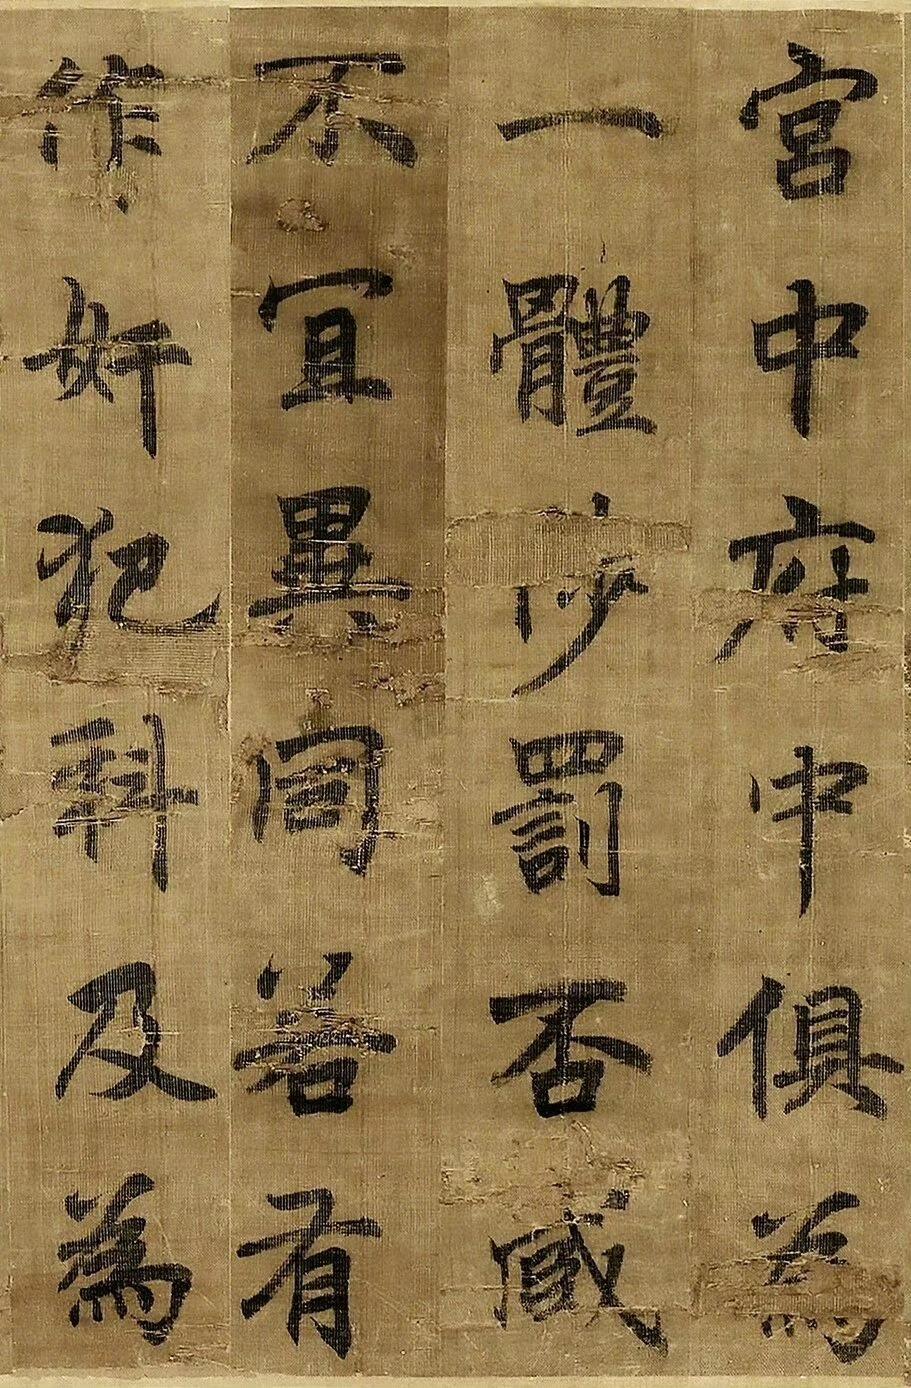 宮中府中俱為
一體陟罰否臧
不宜異同若有
作奸犯科及為